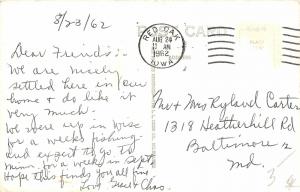 8/23/62
Dear Friends:-
We are nicely
settled here in our
home & do like it
very much.
We were up in Wise
for a weeks fishing
and expect to go to
Minn. for a week in Sept.
Hope this finds you all fine
Love & Chas.
POST CARD
RED OAK
AUG 24
AM
1962
IOWA
Mr & Mrs Ryland Carter
1318 Heatherhill Rd
Baltimore
Md.